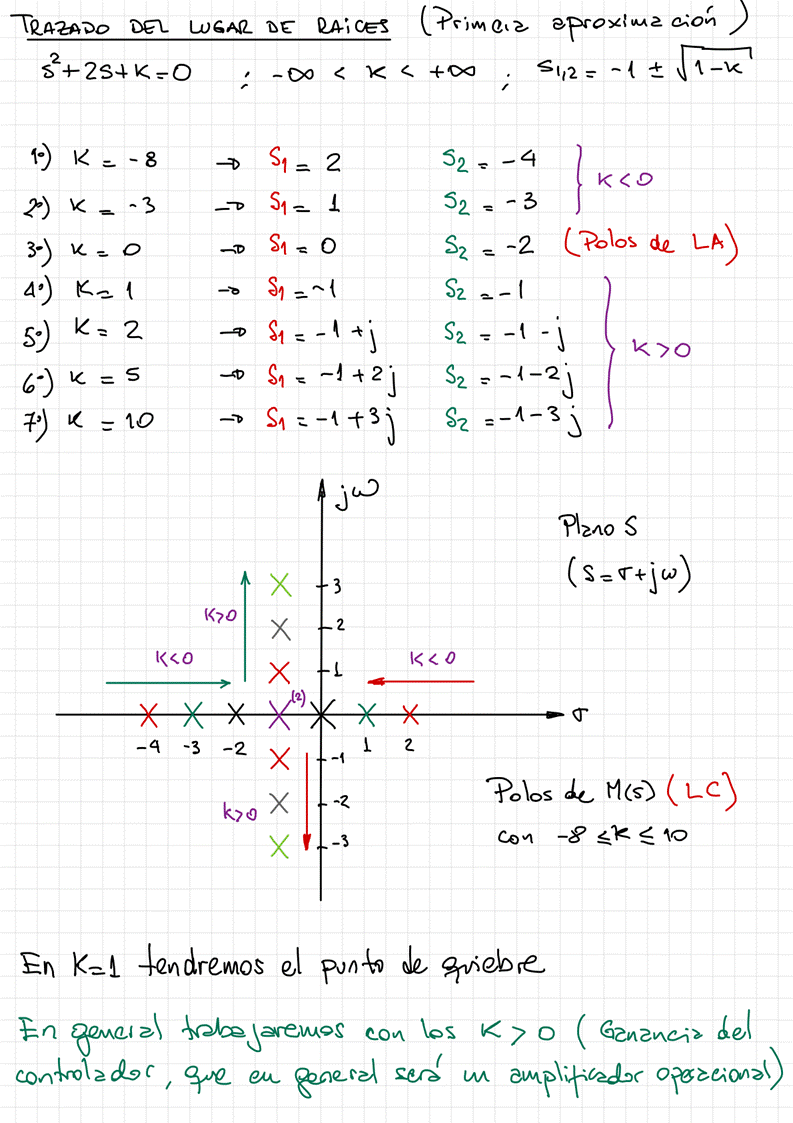 TRAZADO DEL LUGAR DE RAICES (Primera aproximación)
s²+2s+K=0 ; -∞ < K < +∞ ; S1,2 = -1 ± √(1-K)
1º) K = -8 → S1 = 2 S2 = -4
2º) K = -3 → S1 = 1 S2 = -3 } K<0
3º) K = 0 → S1 = 0 S2 = -2 (Polos de LA)
4º) K = 1 → S1 = -1 S2 = -1
5º) K = 2 → S1 = -1+j S2 = -1-j } K>0
6º) K = 5 → S1 = -1+2j S2 = -1-2j
7º) K = 10 → S1 = -1+3j S2 = -1-3j
jω
Plano S
(S=σ+jω)
3
K>0 2
K<0 1 K<0
(2)
σ
-4 -3 -2 -1 1 2
Polos de M(s) (LC)
K>0 -2
con -8 ≤ K ≤ 10
-3
En K=1 tendremos el punto de quiebre
En general trabajaremos con los K > 0 (Ganancia del
controlador, que en general será un amplificador operacional)